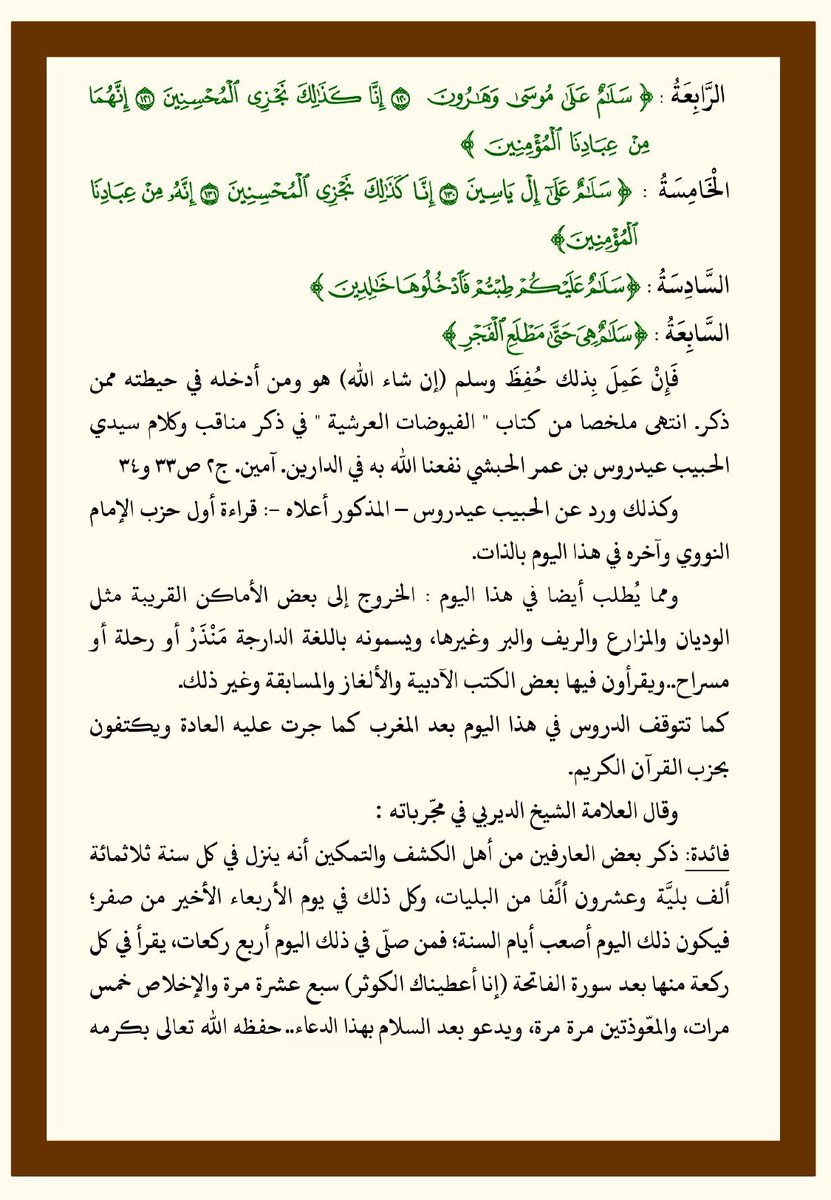 الرَّابِعَةُ : ﴿ سَلَٰمٌ عَلَىٰ مُوسَىٰ وَهَٰرُونَ ١٢٠ إِنَّا كَذَٰلِكَ نَجۡزِي ٱلۡمُحۡسِنِينَ ١٢١ إِنَّهُمَا
مِنۡ عِبَادِنَا ٱلۡمُؤۡمِنِينَ ﴾
الْخَامِسَةُ : ﴿ سَلَٰمٌ عَلَىٰٓ إِلۡ يَاسِينَ ١٣٠ إِنَّا كَذَٰلِكَ نَجۡزِي ٱلۡمُحۡسِنِينَ ١٣١ إِنَّهُۥ مِنۡ عِبَادِنَا
ٱلۡمُؤۡمِنِينَ﴾
السَّادِسَةُ : ﴿سَلَٰمٌ عَلَيۡكُمۡ طِبۡتُمۡ فَٱدۡخُلُوهَا خَٰلِدِينَ ﴾
السَّابِعَةُ : ﴿سَلَٰمٌ هِيَ حَتَّىٰ مَطۡلَعِ ٱلۡفَجۡرِ ﴾
فَإِنْ عَمِلَ بِذلك حُفِظَ وسلم (إن شاء الله) هو ومن أدخله في حيطته ممن
ذكر. انتهى ملخصا من كتاب " الفيوضات العرشية " في ذكر مناقب وكلام سيدي
الحبيب عيدروس بن عمر الحبشي نفعنا الله به في الدارين. آمين. ج٢ ص٣٣ و٣٤
وكذلك ورد عن الحبيب عيدروس – المذكور أعلاه -: قراءة أول حزب الإمام
النووي وآخره في هذا اليوم بالذات.
ومما يُطلب أيضا في هذا اليوم : الخروج إلى بعض الأماكن القريبة مثل
الوديان والمزارع والريف والبر وغيرها، ويسمونه باللغة الدارجة مَنْذَرْ أو رحلة أو
مسراح..ويقرأون فيها بعض الكتب الآدبية والألغاز والمسابقة وغير ذلك.
كما تتوقف الدروس في هذا اليوم بعد المغرب كما جرت عليه العادة ويكتفون
بحزب القرآن الكريم.
وقال العلامة الشيخ الديربي في مجّرباته :
فائدة: ذكر بعض العارفين من أهل الكشف والتمكين أنه ينزل في كل سنة ثلاثمائة
ألف بليَّة وعشرون ألًفا من البليات، وكل ذلك في يوم الأربعاء الأخير من صفر؛
فيكون ذلك اليوم أصعب أيام السنة؛ فمن صلّى في ذلك اليوم أربع ركعات، يقرأ في كل
ركعة منها بعد سورة الفاتحة (إنا أعطيناك الكوثر) سبع عشرة مرة والإخلاص خمس
مرات، والمعّوذتين مرة مرة، ويدعو بعد السلام بهذا الدعاء.. حفظه الله تعالى بكرمه